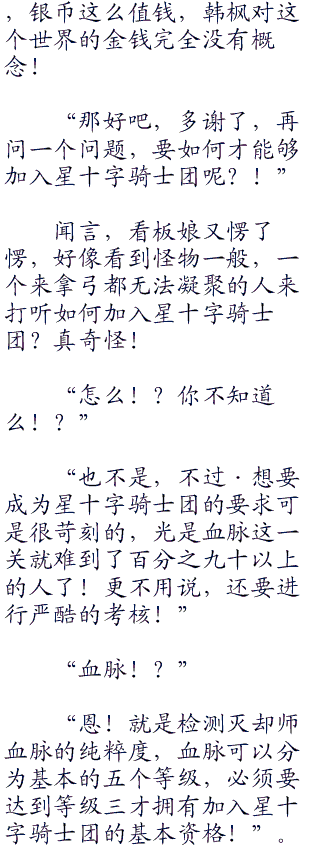 ，银币这么值钱，韩枫对这
个世界的金钱完全没有概
念！
“那好吧，多谢了，再
问一个问题，要如何才能够
加入星十字骑士团呢？！”
闻言，看板娘又愣了
愣，好像看到怪物一般，一
个来拿弓都无法凝聚的人来
打听如何加入星十字骑士
团？真奇怪！
“怎么！？你不知道
么！？”
“也不是，不过·想要
成为星十字骑士团的要求可
是很苛刻的，光是血脉这一
关就难到了百分之九十以上
的人了！更不用说，还要进
行严酷的考核！”
“血脉！？”
“恩！就是检测灭却师
血脉的纯粹度，血脉可以分
为基本的五个等级，必须要
达到等级三才拥有加入星十
字骑士团的基本资格！”。